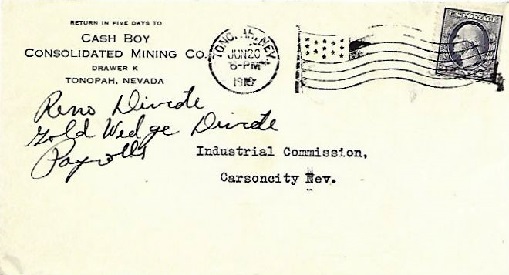 RETURN IN FIVE DAYS TO
CASH BOY
CONSOLIDATED MINING CO.
DRAWER K
TONOPAH, NEVADA
TONOPAH, NEV.
JUN 20
6-PM
Reno Divide
Gold Wedge Divide
Payrolls
Industrial Commission,
Carsoncity Nev.